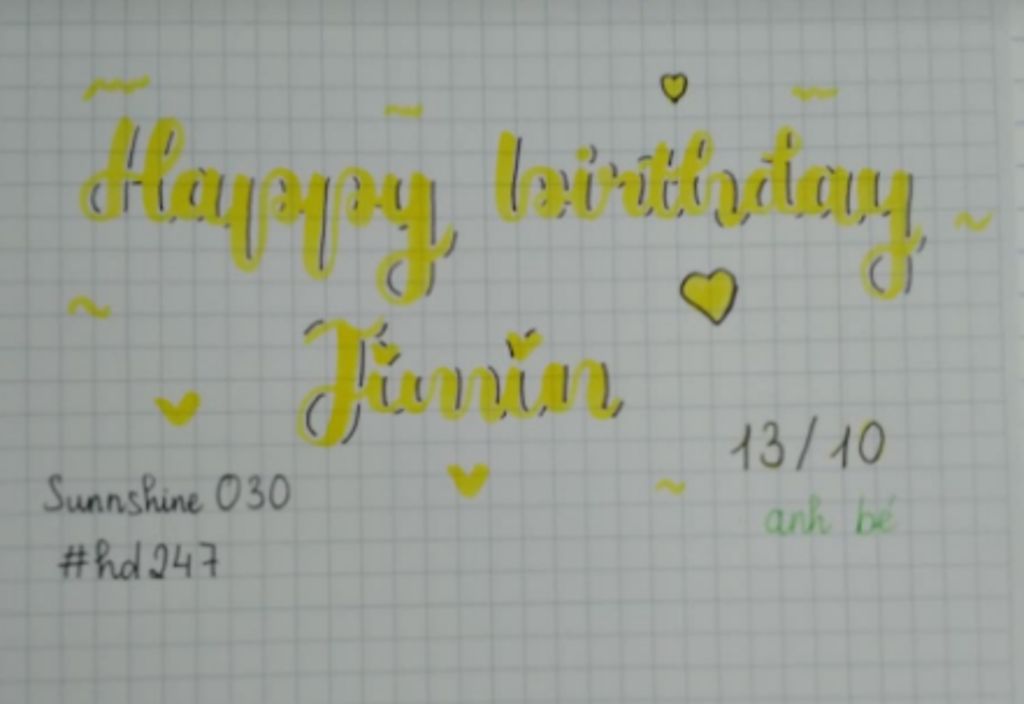 Happy birthday
Jimin
13/10
anh bé
Sunnshine 030
#hd247